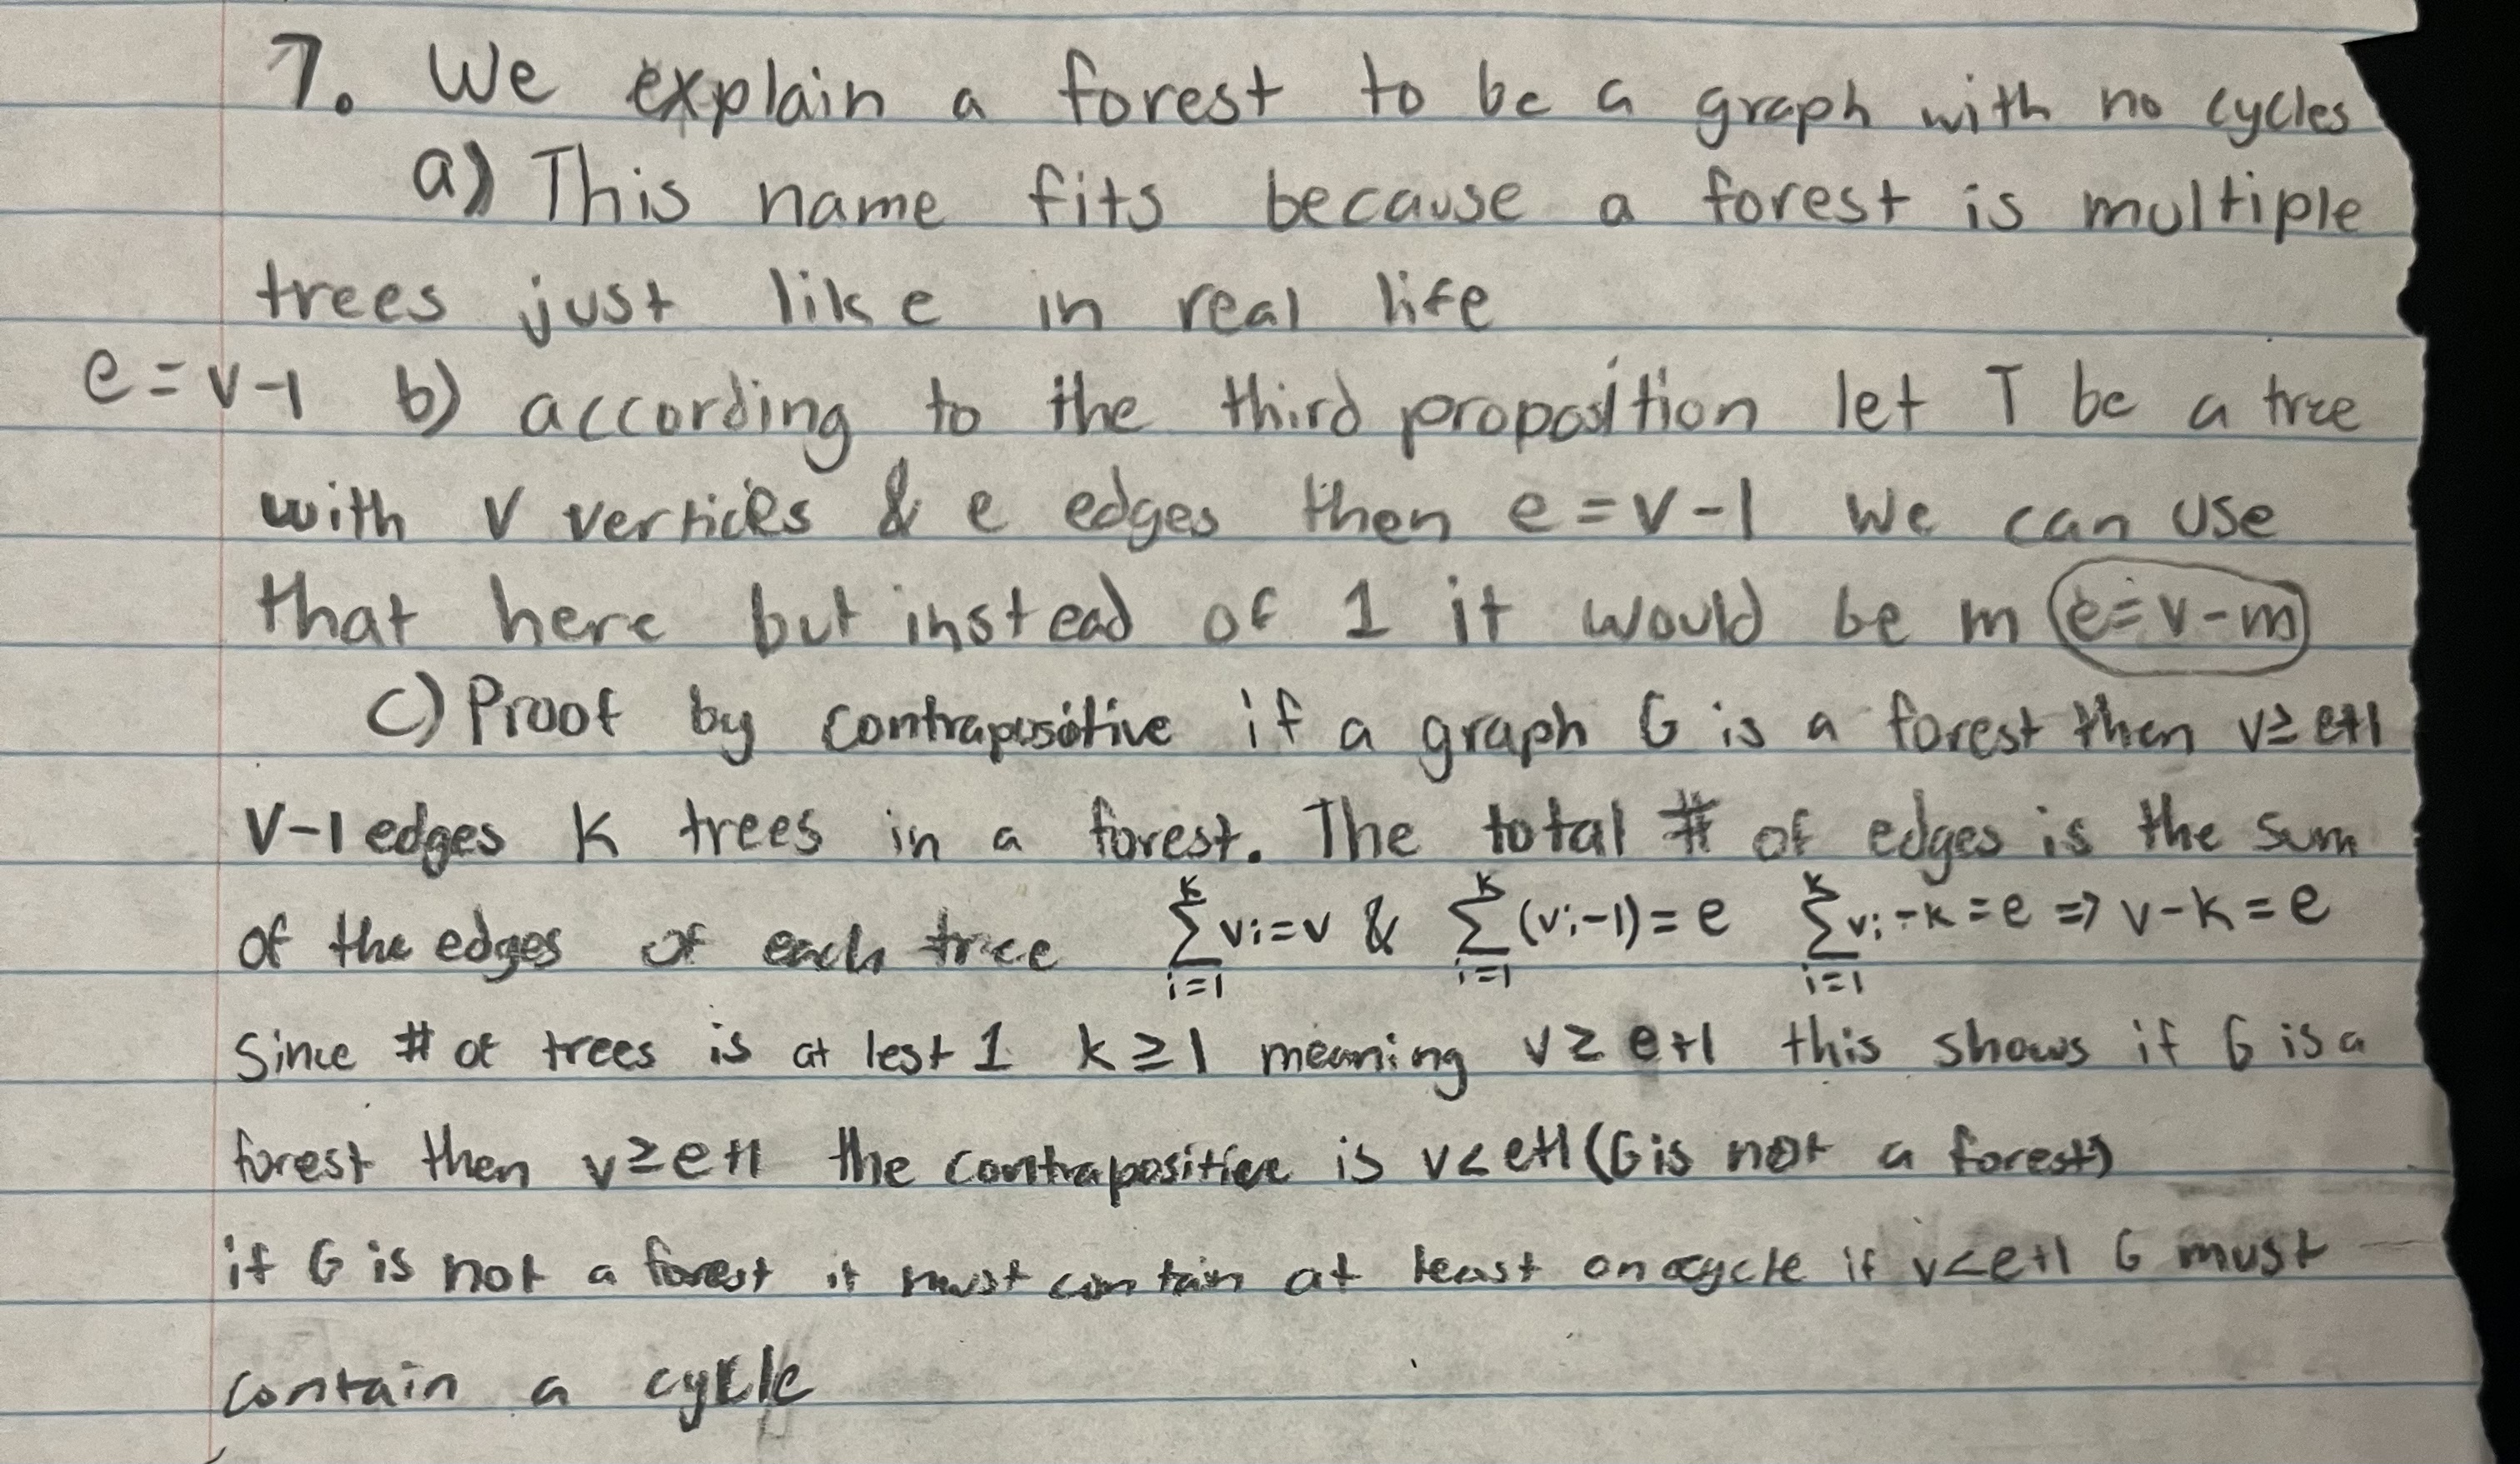 7. We explain a forest to be a graph with no cycles
a) This name fits because a forest is multiple
trees just like in real life
e=v-1 b) according to the third proposition let T be a tree
with v vertices & e edges then e=v-1 we can use
that here but instead of 1 it would be m e=v-m
c) Proof by contrapositive if a graph G is a forest then v≥e+1
V-1 edges K trees in a forest. The total # of edges is the sum
of the edges of each tree \sum_{i=1}^{k} vi=v & \sum_{i=1}^{k} (vi-1)=e \sum_{i=1}^{k} vi-k=e ⇒ v-k=e
Since # of trees is at lest 1 k≥1 meaning v≥e+1 this shows if G is a
forest then v≥e+1 the contrapositive is v<e+1 (G is not a forest)
if G is not a forest it must contain at least on cycle if v<e+1 G must
contain a cycle